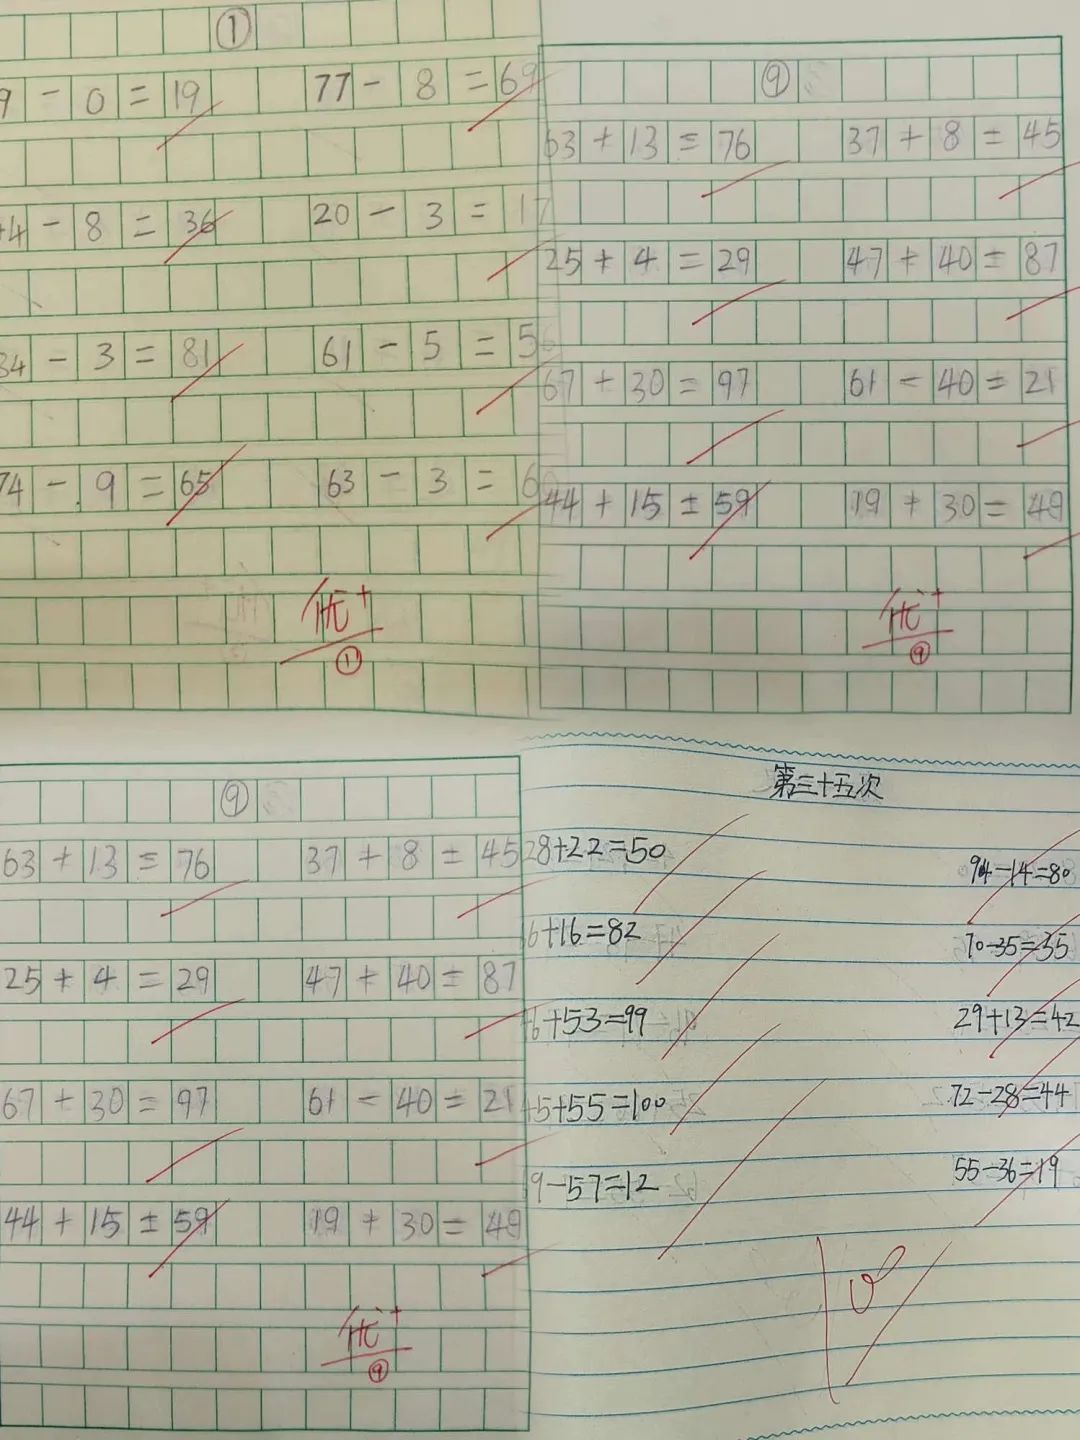 ①
9 - 0 = 19 77 - 8 = 69
44 - 8 = 36 20 - 3 = 17
84 - 3 = 81 61 - 5 = 56
74 - 9 = 65 63 - 3 = 60
优+
①
⑨
63 + 13 = 76 37 + 8 = 45
25 + 4 = 29 47 + 40 = 87
67 + 30 = 97 61 - 40 = 21
44 + 15 = 59 19 + 30 = 49
优+
⑨
⑨
63 + 13 = 76 37 + 8 = 45
25 + 4 = 29 47 + 40 = 87
67 + 30 = 97 61 - 40 = 21
44 + 15 = 59 19 + 30 = 49
优+
⑨
第三十五次
28+22=50 94-14=80
6+16=82 70-35=35
46+53=99 29+13=42
45+55=100 72-28=44
9-57=12 55-36=19